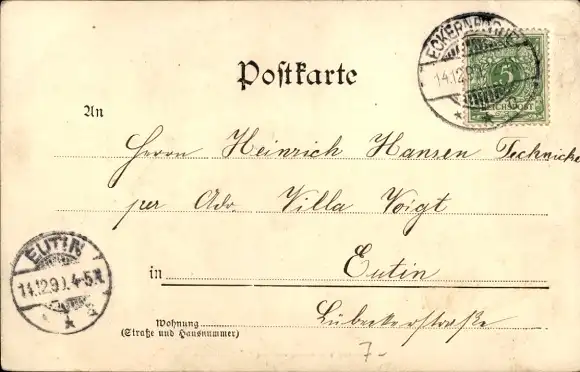 Postkarte
ECKERNFÖRDE
14.12.9
5
REICHSPOST
An
Herrn Heinrich Hansen Technicker
per Adr. Villa Voigt
EUTIN
14.12.9 4-5N
in Eutin
Wohnung Lübeckerstraße
(Straße und Hausnummer)
7-